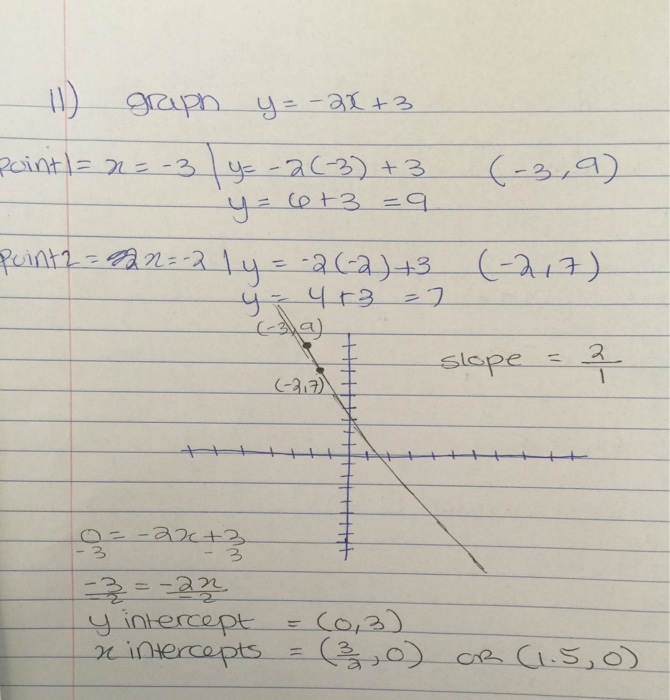 11) graph y = -2x + 3
Point 1 = x = -3 | y = -2(-3) + 3 (-3, 9)
y = 6 + 3 = 9
Point 2 = x = -2 | y = -2(-2) + 3 (-2, 7)
y = 4 + 3 = 7
(-3, 9)
slope = 2/1
(-2, 7)
0 = -2x + 3
-3 -3
-3/-2 = -2x/-2
y intercept = (0, 3)
x intercepts = (3/2, 0) OR (1.5, 0)